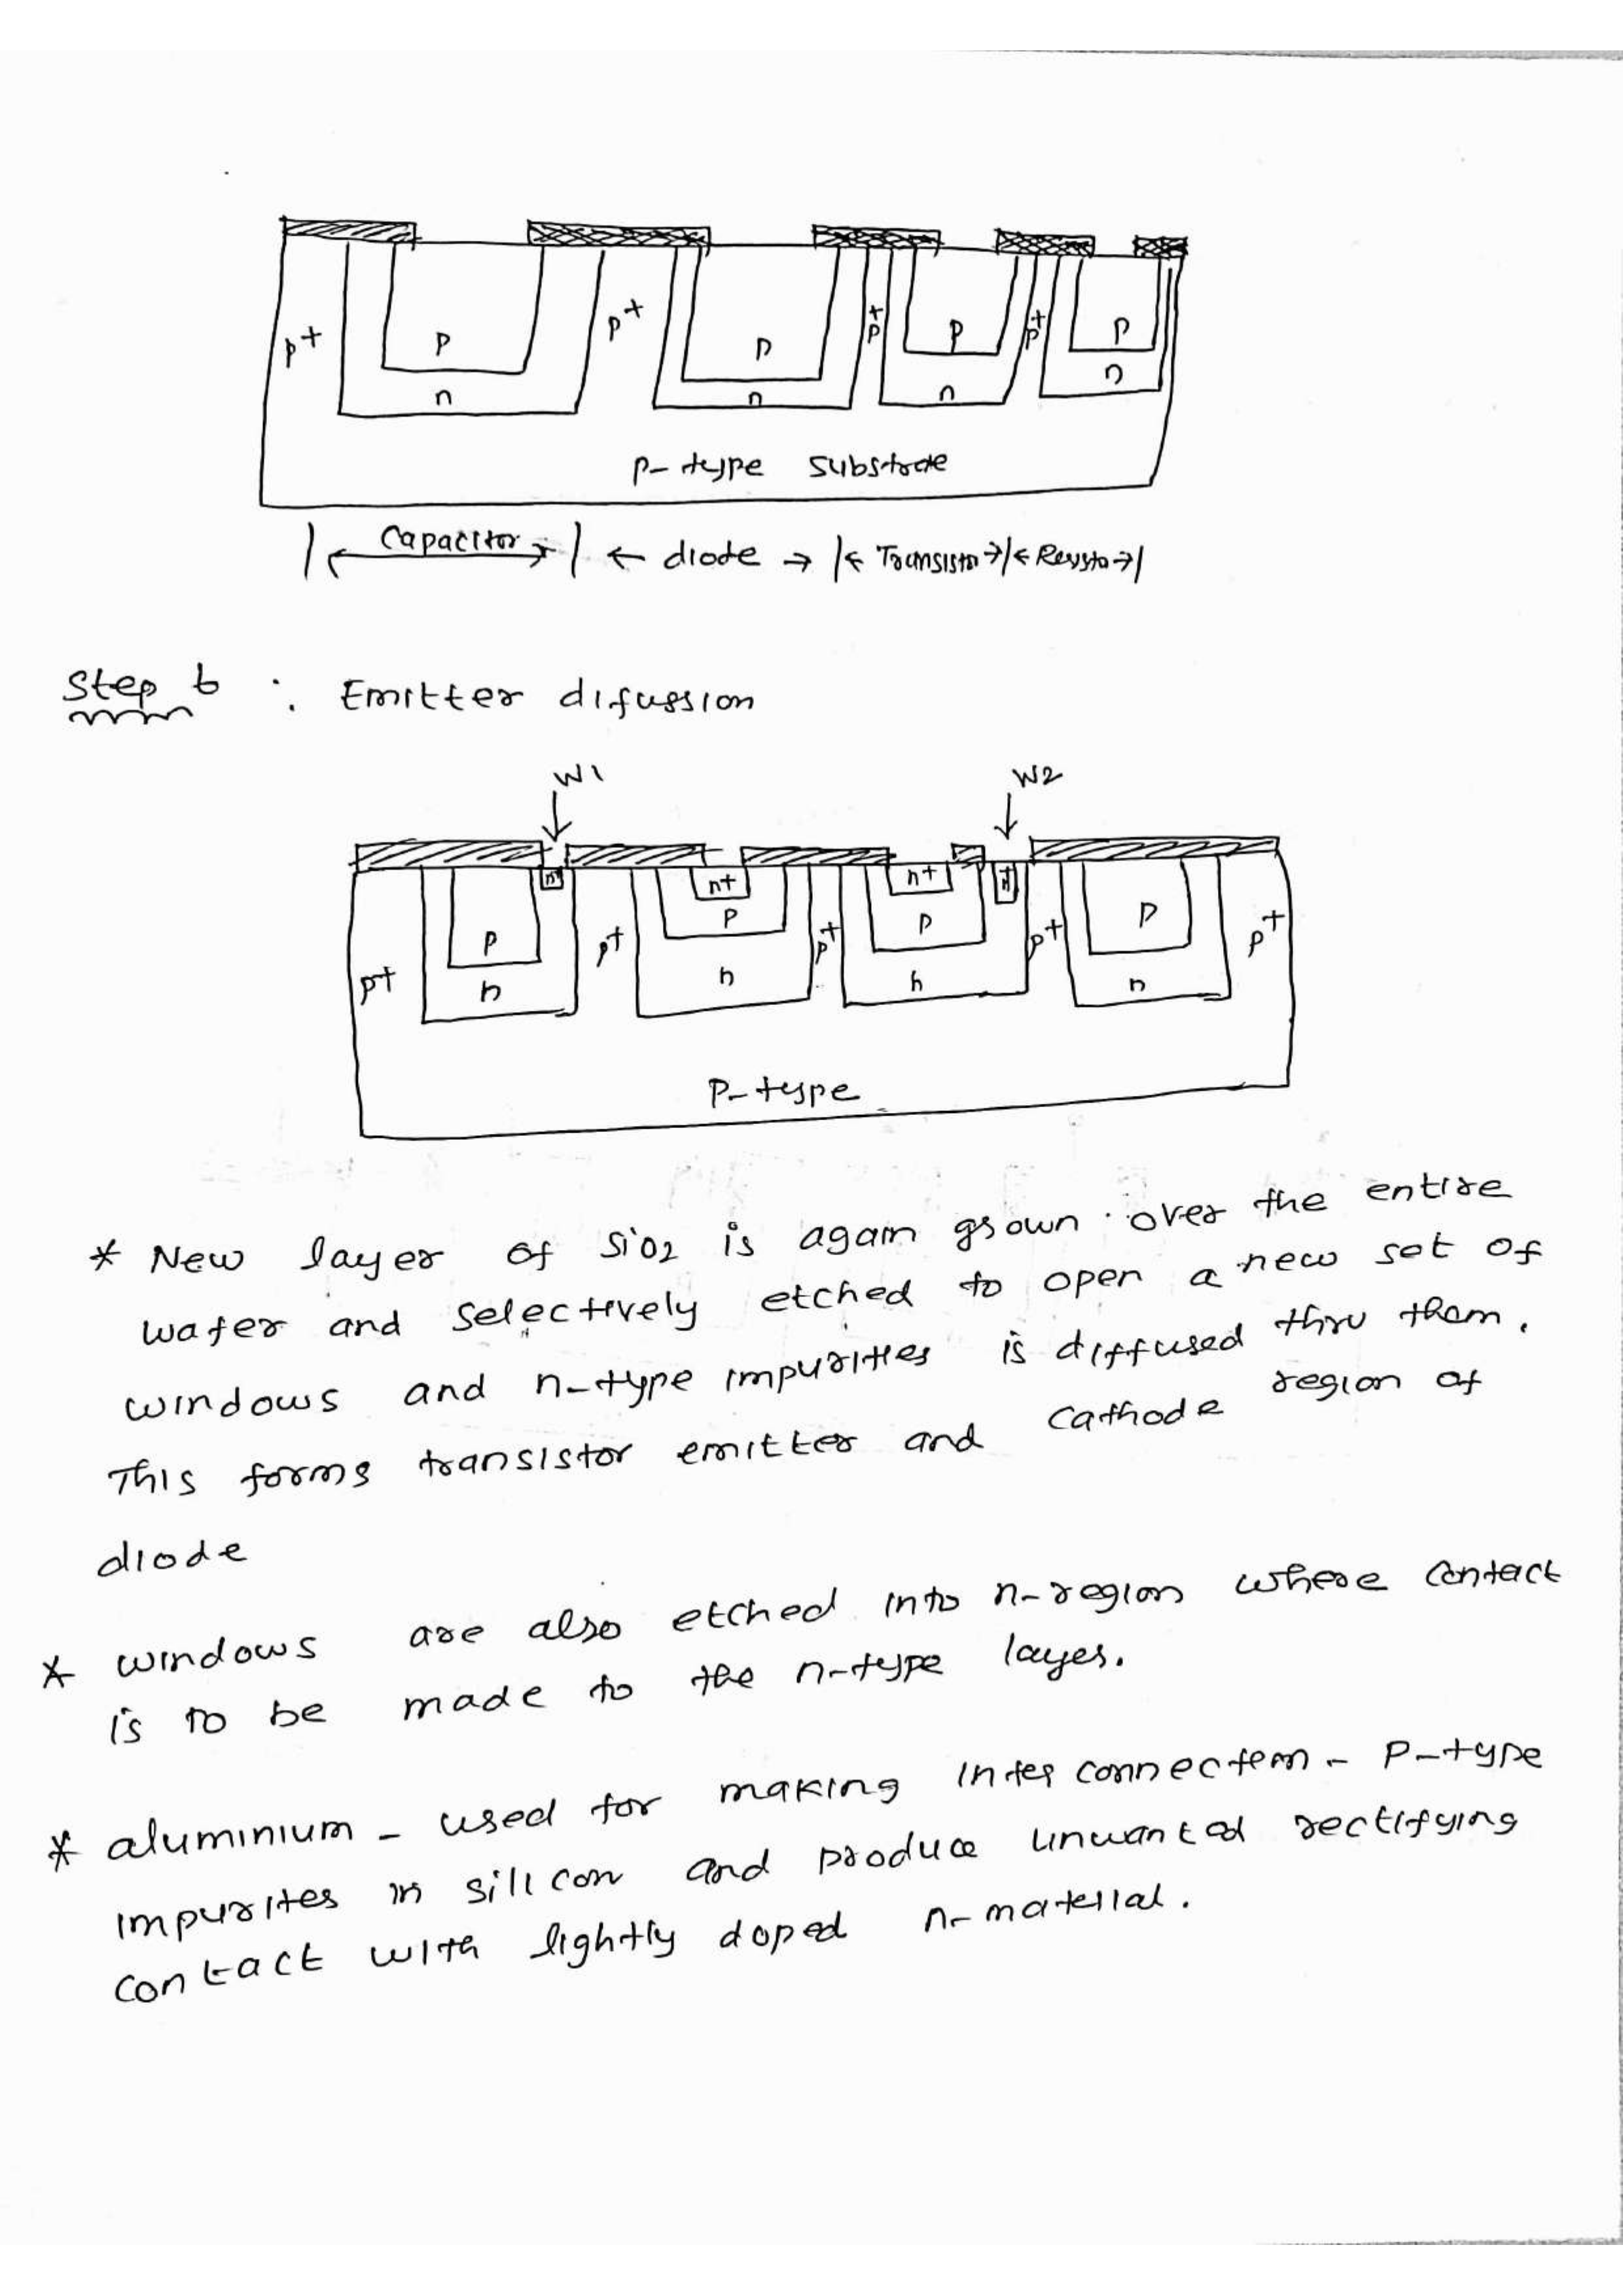 p+ p p+ p p+ p p+ p
n n n n
p- type substrate
Capacitor diode Transistor Resisto
Step 6 : Emitter difussion
W1 W2
n+ n+ n+
p p p p
p+ p+ p+ p+ p+
n n n n
P-type
* New layer of SiO2 is again grown over the entire
wafer and selectively etched to open a new set of
windows and n-type impurities is diffused thru them.
This forms transistor emitter and cathode region of
diode
* windows are also etched into n-region where contact
is to be made to the n-type layer.
* aluminium - used for making inter connectem - P-type
impurites in silicon and produce unwanted rectifying
contact with lightly doped n-material.